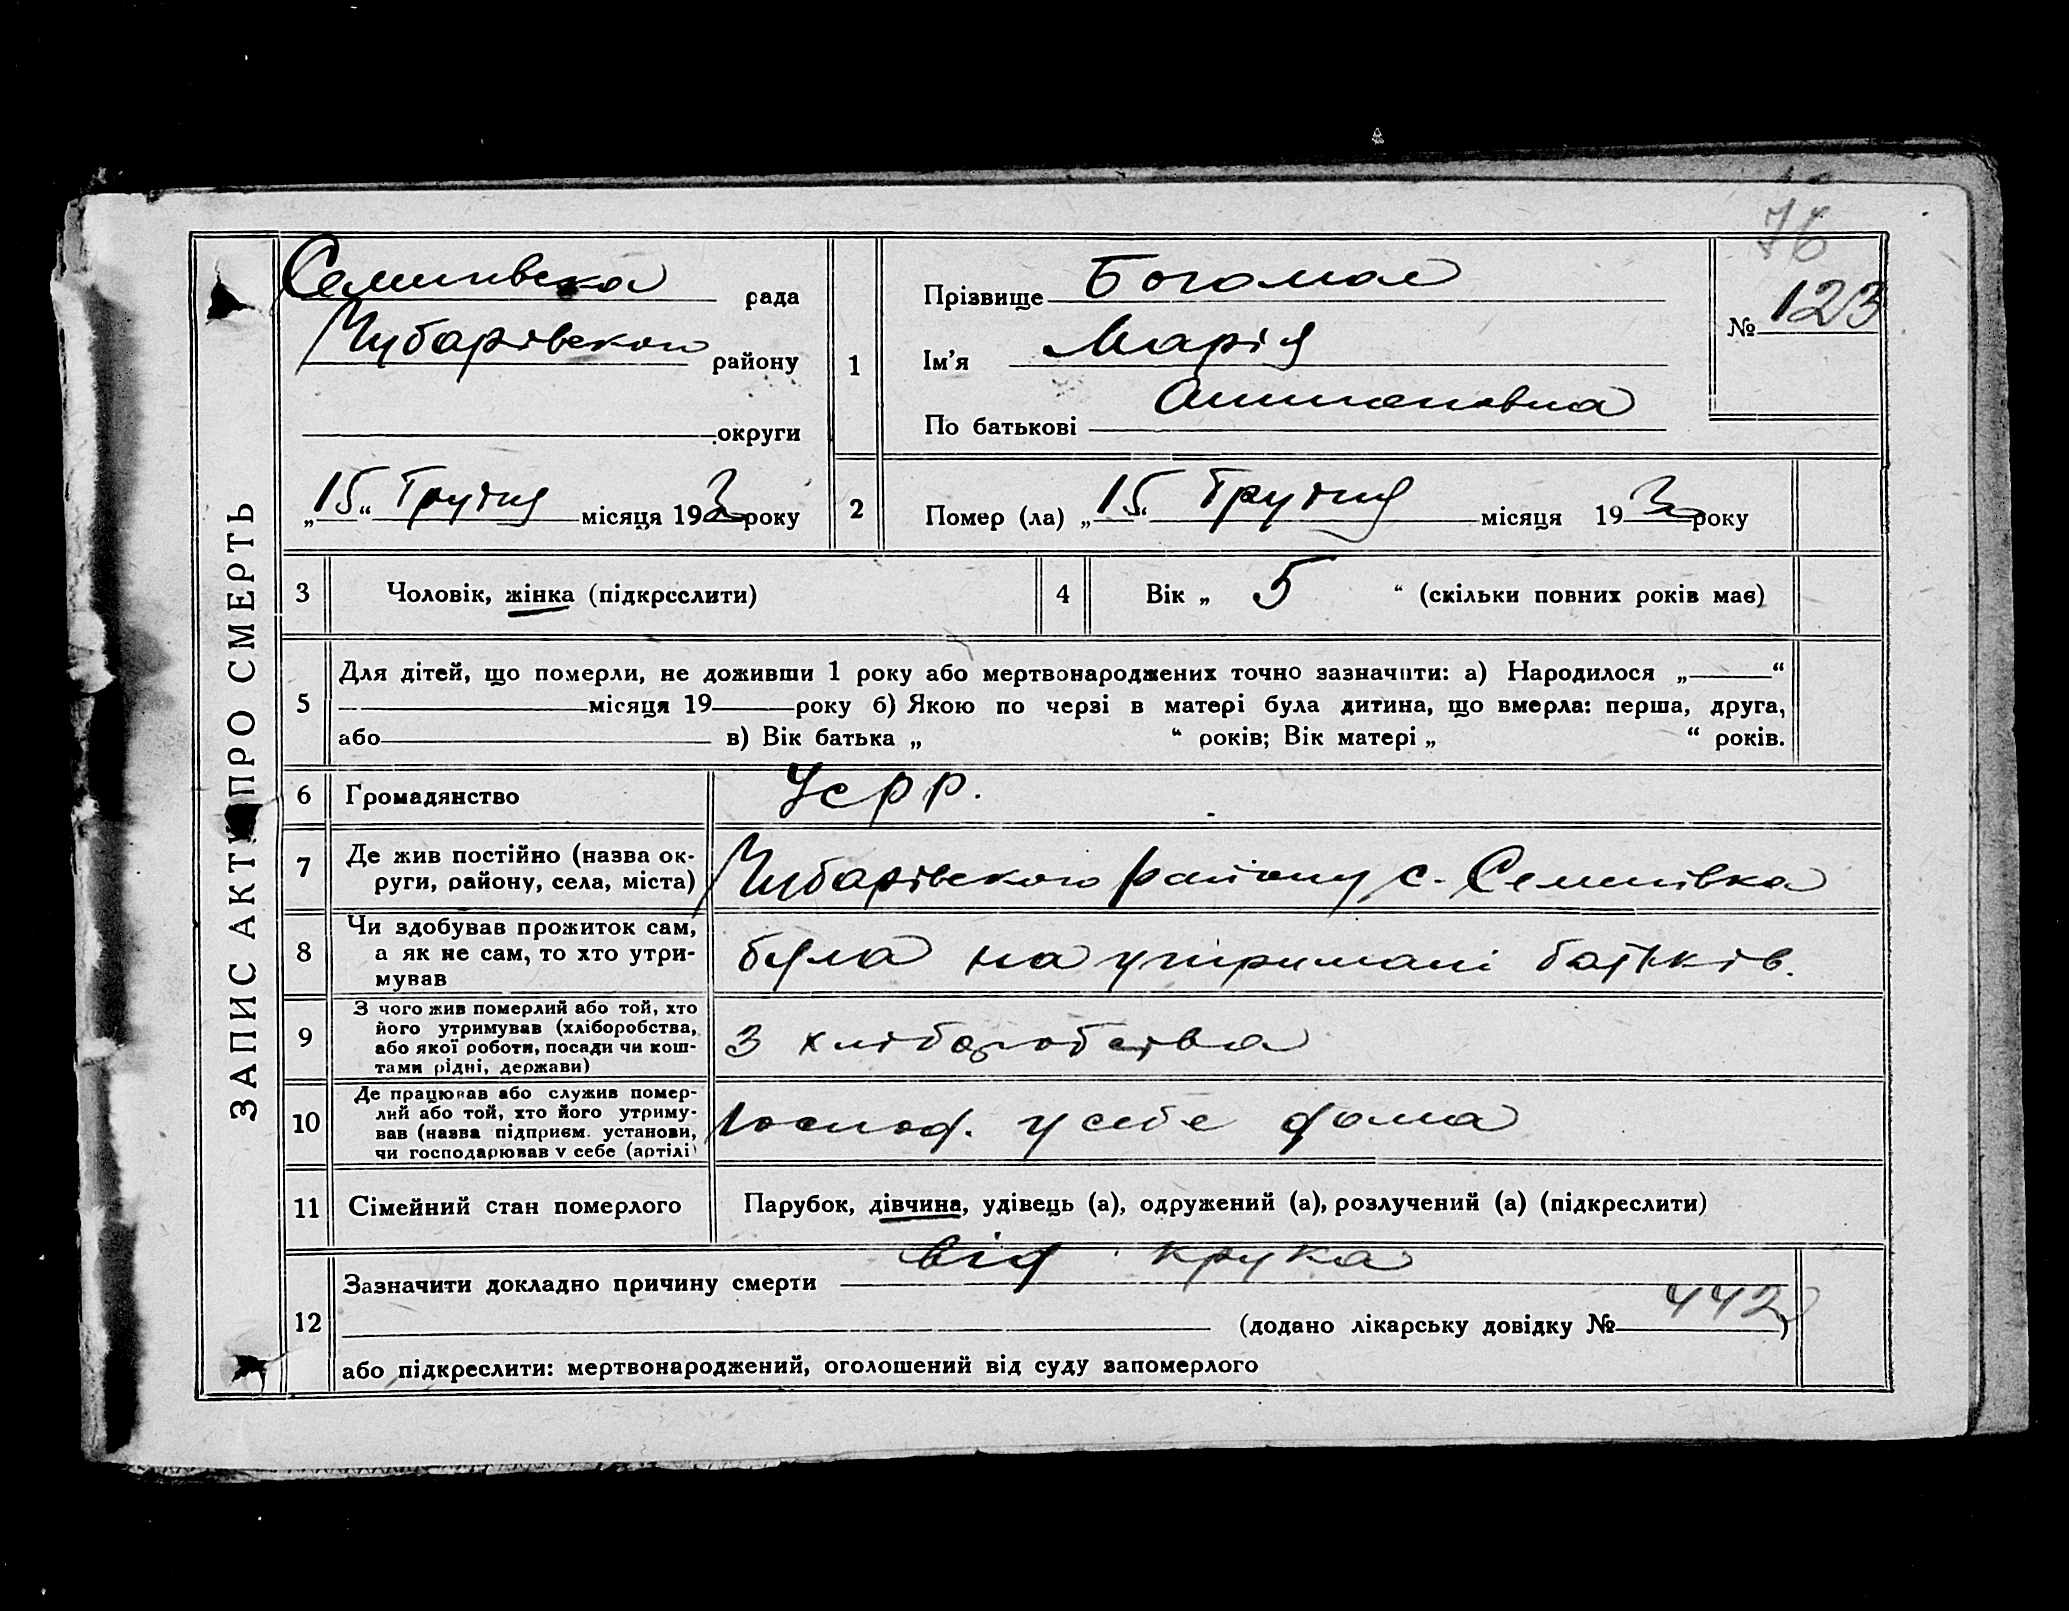 76
ЗАПИС АКТУ ПРО СМЕРТЬ
Семенівська рада
Чубарівського району
округи
„15“ Грудня місяця 193 року
1
Прізвище Богомол
Ім'я Марія
По батькові
№ 123
2
Помер (ла) „15“ Грудня місяця 193 року
3
Чоловік, жінка (підкреслити)
4
Вік „ 5 “ (скільки повних років має)
5
Для дітей, що померли, не доживши 1 року або мертвонароджених точно зазначити: а) Народилося „ “
місяця 19 року б) Якою по черзі в матері була дитина, що вмерла: перша, друга,
або в) Вік батька „ “ років; Вік матері „ “ років.
6
Громадянство
Усрр.
7
Де жив постійно (назва ок-
руги, району, села, міста)
Чубарівського району с. Семенівка
8
Чи здобував прожиток сам,
а як не сам, то хто утри-
мував
була на утримані батьків.
9
З чого жив померлий або той, хто
його утримував (хліборобства,
або якої роботи, посади чи кош-
тами рідні, держави)
З хліборобства
10
Де працював або служив помер-
лий або той, хто його утриму-
вав (назва підприєм. установи,
чи господарював у себе (артілі)
Господ. у себе дома
11
Сімейний стан померлого
Парубок, дівчина, удівець (а), одружений (а), розлучений (а) (підкреслити)
12
Зазначити докладно причину смерти від крука
(додано лікарську довідку № 442)
або підкреслити: мертвонароджений, оголошений від суду запомерлого